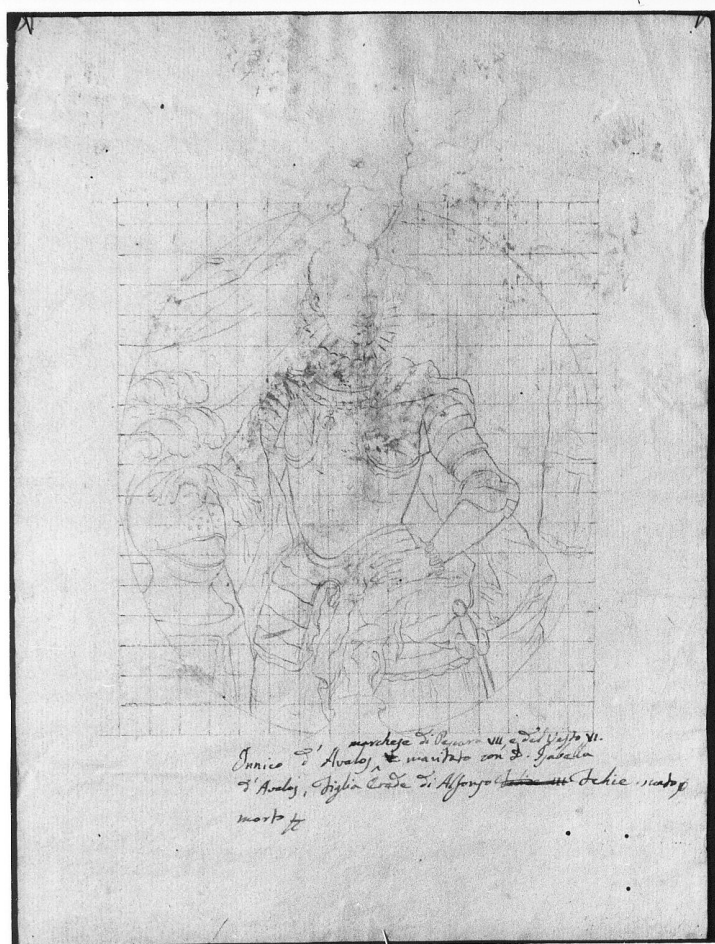 marchese di Pescara VII, e del Vasto VI.
Innico d'Avalos, maritato con D. Isabella
d'Avalos, figlia Erede di Alfonso Felice nato
morto